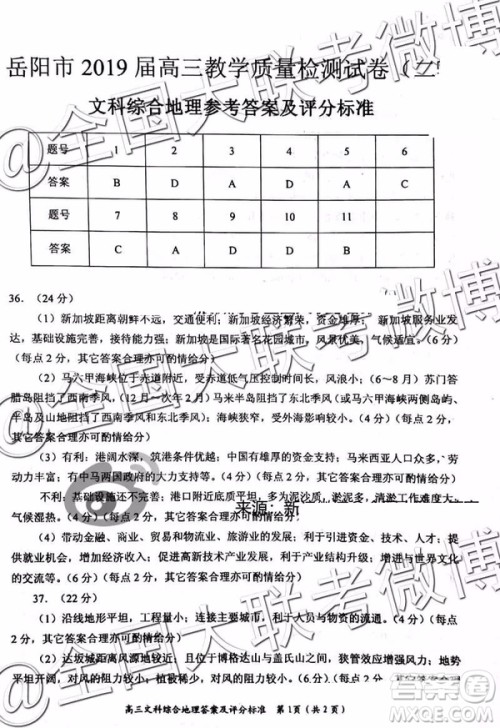 岳阳市 2019 届高三教学质量检测试卷（二
文科综合地理参考答案及评分标准
题号 1 2 3 4 5 6
答案 B D A D A C
题号 7 8 9 10 11
答案 C A C D B
36.（24 分）
（1）新加坡距离朝鲜不远，交通便利；新加坡经济繁荣，资金雄厚；新加坡服务业发
达，基础设施完善，接待能力强；新加坡是国际著名花园城市，风景优美，气候适宜。（6 分）
（每点 2 分，其它答案合理亦可酌情给分）
（2）马六甲海峡位于赤道附近，受赤道低气压带控制时间长，风浪小；（6～8 月）苏门答
腊岛阻挡了西南季风，（12 月～次年2月）马来半岛阻挡了东北季风（或马六甲海峡两侧岛屿、
半岛及山地阻挡了西南季风和东北季风）；海峡狭窄，受外海影响小。（4 分）（每点 2 分，
其它答案合理亦可酌情给分）
（3）有利：港阔水深，筑港条件优越；中国有雄厚的资金与先进技术；马来西亚人口众多，劳
动力丰富；有中马两国政府的大力支持等。（4 分）（每点 2 分，其它答案合理亦可酌情给分）
不利：基础设施还不完善；港口附近底质平坦，多为泥沙质，淤泥多，清淤工作难度大
气候湿热。（4 分）（每点 2 分，其它答案合理亦可酌情给分）
来源：新
（4）带动金融、商业、贸易和物流业、旅游业的发展；引进资金与技术；扩大对外开放；提
供就业机会，增加经济收入；促进高新技术产业发展，利于产业结构升级；促进世界经济、文化
的交流等。（6 分）（每点 2 分，其它答案合理亦可酌情给分）
37.（22 分）
（1）沿线地形平坦，工程量小；连接主要城市，利于人员与物资的流通。（4 分）（每点 2
分，其它答案合理亦可酌情给分）
（2）达坂城距离风源地较近；其位于博格达山与盖氏山之间，狭管效应显著；
平坦开阔，对风的阻力较小；植被稀少，对风的阻力较小。（6 分）（每点 2 分，其它答案合理
高三文科综合地理答案及评分标准 第 1 页（共 2 页）
@全国大联考微博
@全国大联考微博